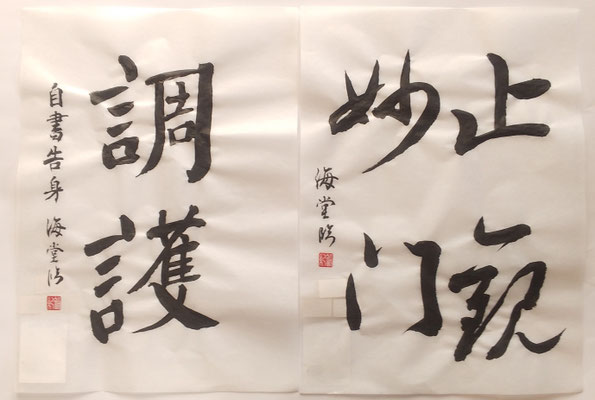 止観
妙门
海堂臨
調護
自書告身 海堂臨